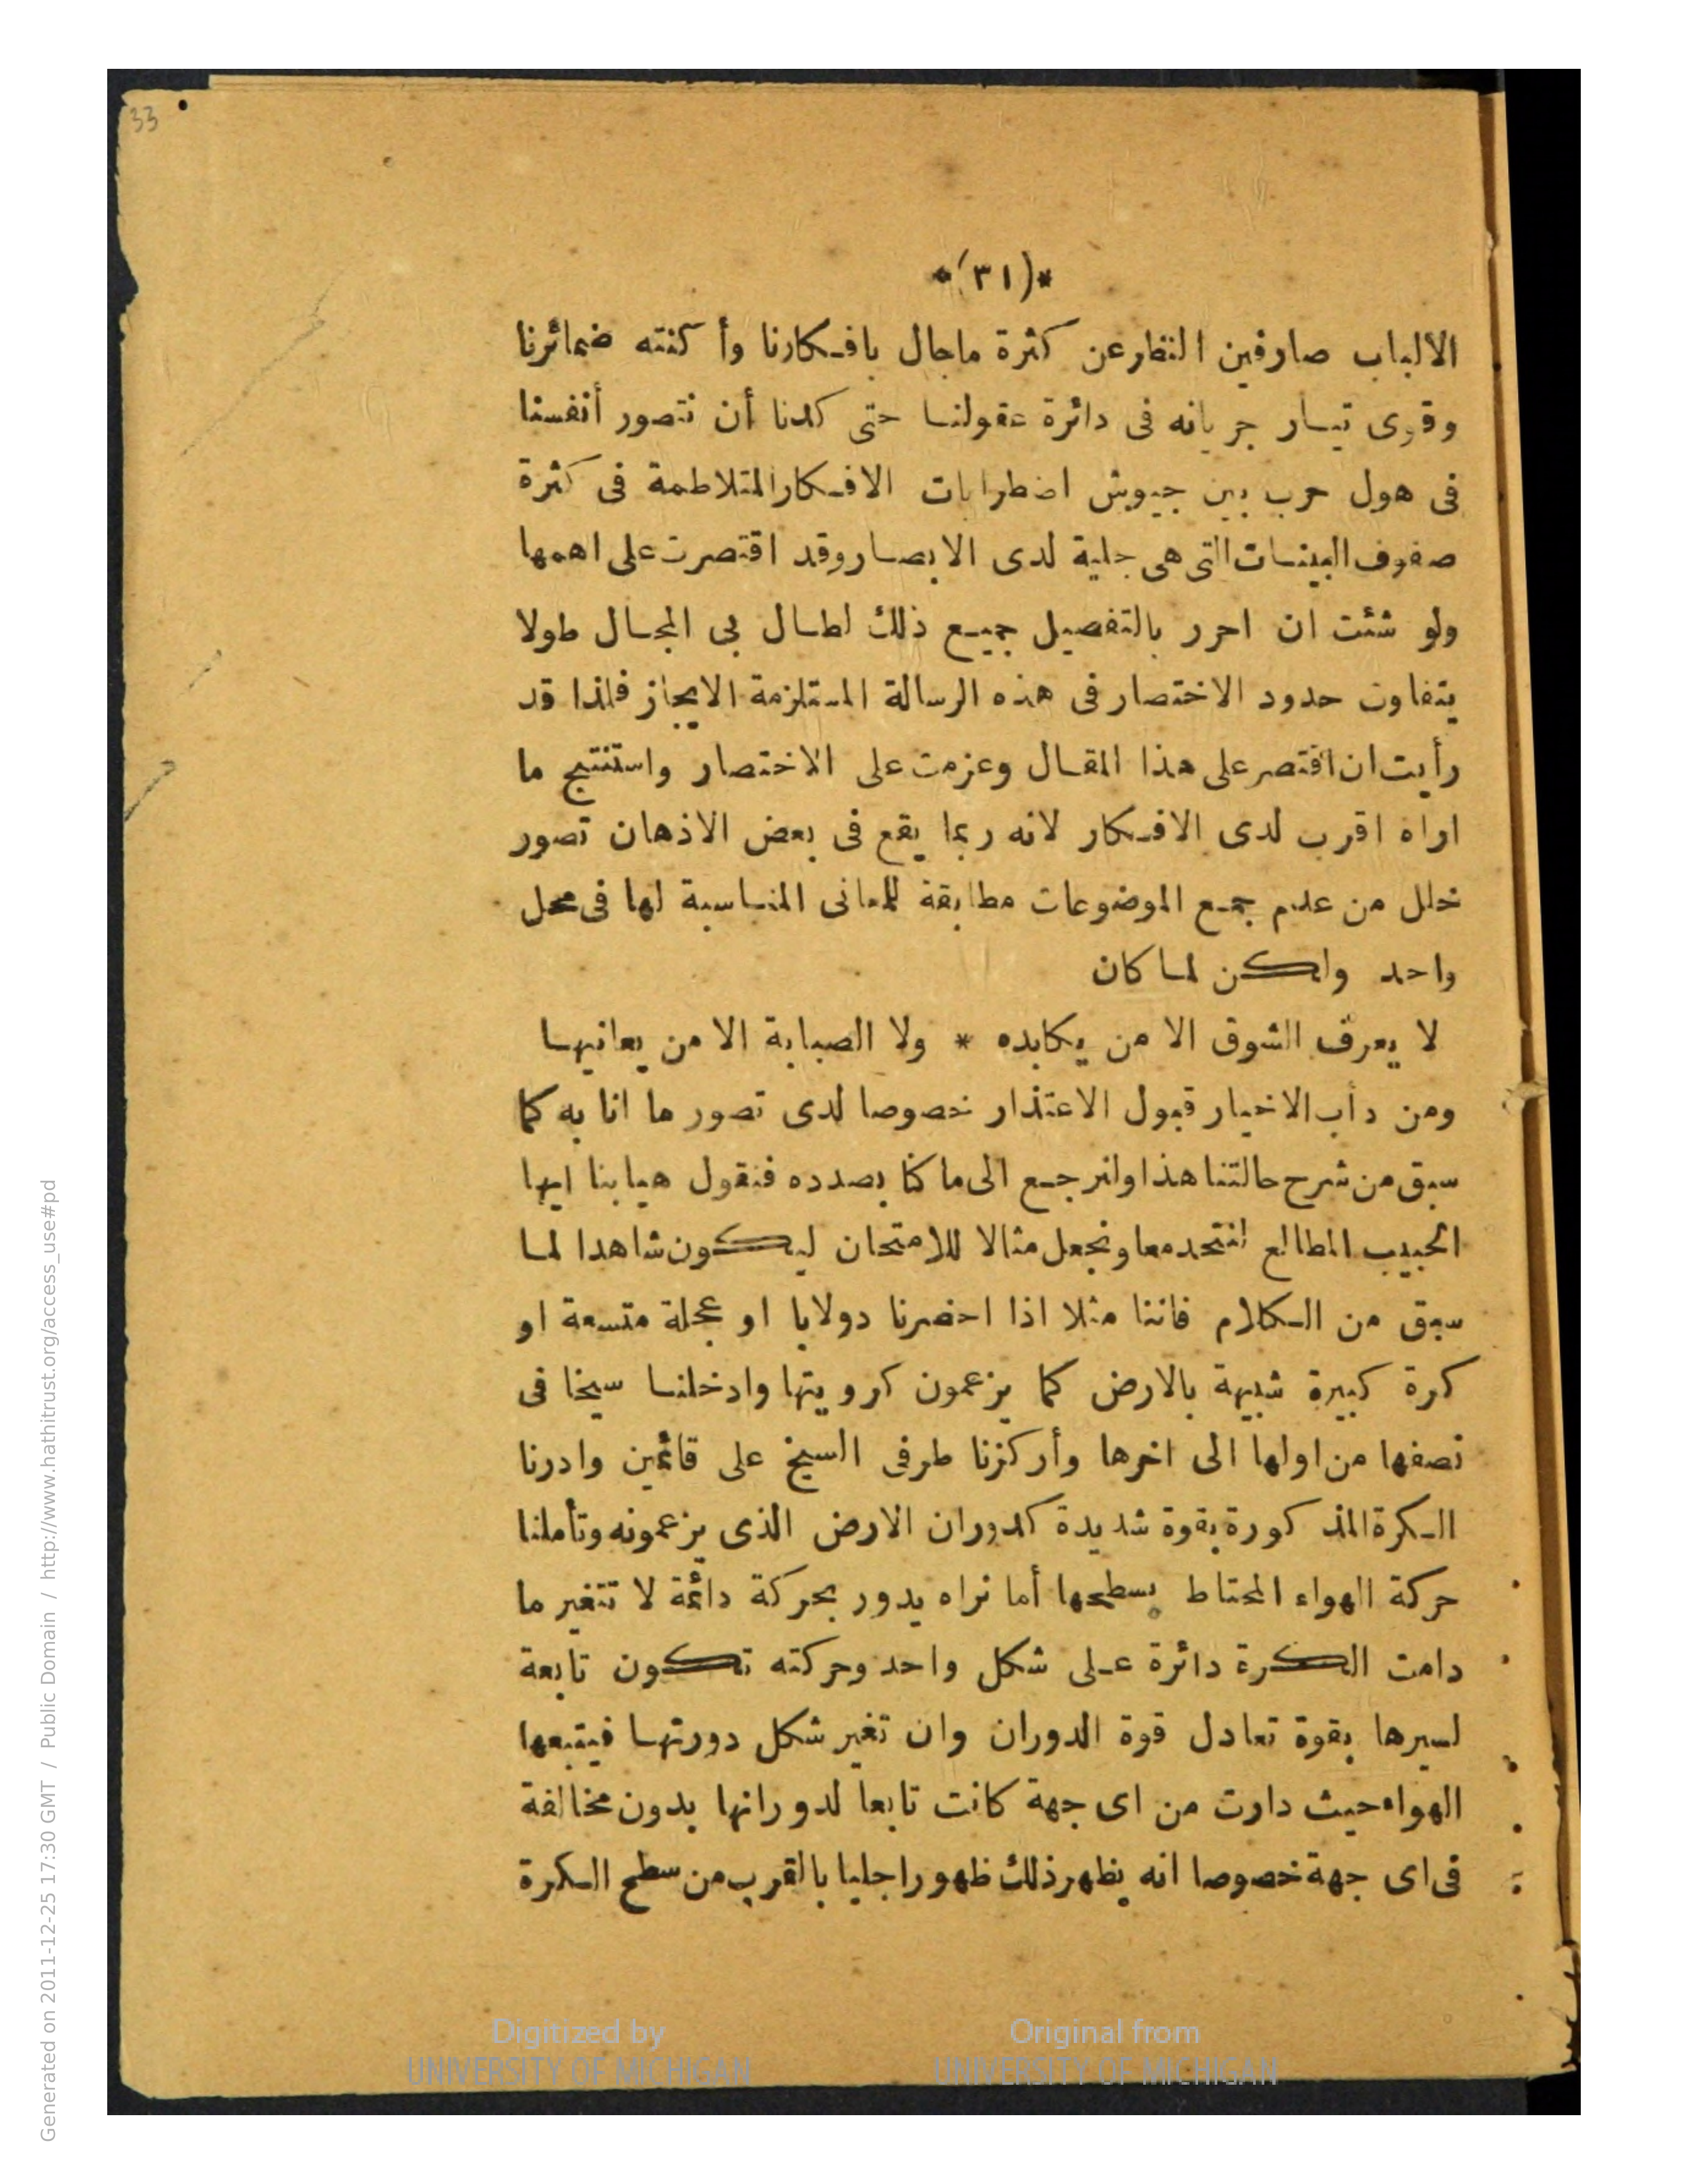 33
*(٣١)*
الالباب صارفين النظار عن كثرة ماجال بافكارنا وأكنته ضمائرنا
وقوى تيار جريانه فى دائرة عقولنا حتى كدنا أن نتصور أنفسنا
فى هول حرب بين جيوش اضطرابات الافكار المتلاطمة فى كثرة
صفوف البينات التى هى جلية لدى الابصار وقد اقتصرت على اهمها
ولو شئت ان احرر بالتفصيل جميع ذلك لطال بى المجال طولا
يتفاوت حدود الاختصار فى هذه الرسالة المستلزمة الايجاز فلذا قد
رأيت ان اقتصر على هذا المقال وعزمت على الاختصار واستنتج ما
اراه اقرب لدى الافكار لانه ربما يقع فى بعض الاذهان تصور
خلل من عدم جمع الموضوعات مطابقة للمعانى المناسبة لها فى محل
واحد ولكن لما كان
لا يعرف الشوق الا من يكابده * ولا الصبابة الا من يعانيها
ومن دأب الاخيار قبول الاعتذار خصوصا لدى تصور ما انا به كما
سبق من شرح حالتنا هذا ولنرجع الى ما كنا بصدده فنقول هيا بنا ايها
الحبيب المطالع لنتحد معا ونجعل مثالا للامتحان ليكون شاهدا لما
سبق من الكلام فاننا مثلا اذا احضرنا دولابا او عجلة متسعة او
كرة كبيرة شبيهة بالارض كما يزعمون كرويتها وادخلنا سيخا فى
نصفها من اولها الى اخرها وأركزنا طرفى السيخ على قائمين وادرنا
الكرة المذكورة بقوة شديدة كدوران الارض الذى يزعمونه وتأملنا
حركة الهواء المحتاط بسطحها أما نراه يدور بحركة دائمة لا تتغير ما
دامت الكرة دائرة على شكل واحد وحركته تكون تابعة
لسيرها بقوة تعادل قوة الدوران وان تغير شكل دورتها فيتبعها
الهواء حيث دارت من اى جهة كانت تابعا لدورانها بدون مخالفة
فى اى جهة خصوصا انه يظهر ذلك ظهورا جليا بالقرب من سطح الكرة
Generated on 2011-12-25 17:30 GMT / Public Domain / http://www.hathitrust.org/access_use#pd
Digitized by
UNIVERSITY OF MICHIGAN
Original from
UNIVERSITY OF MICHIGAN